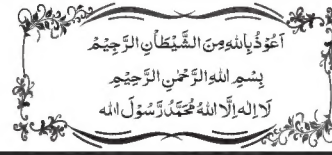 اَعُوْذُ بِاللهِ مِنَ الشَّيْطَانِ الرَّجِيْمُ
بِسْمِ اللهِ الرَّحْمٰنِ الرَّحِيْمِ
لَا اِلٰهَ اِلَّا اللهُ مُحَمَّدٌ رَّسُوْلَ الله